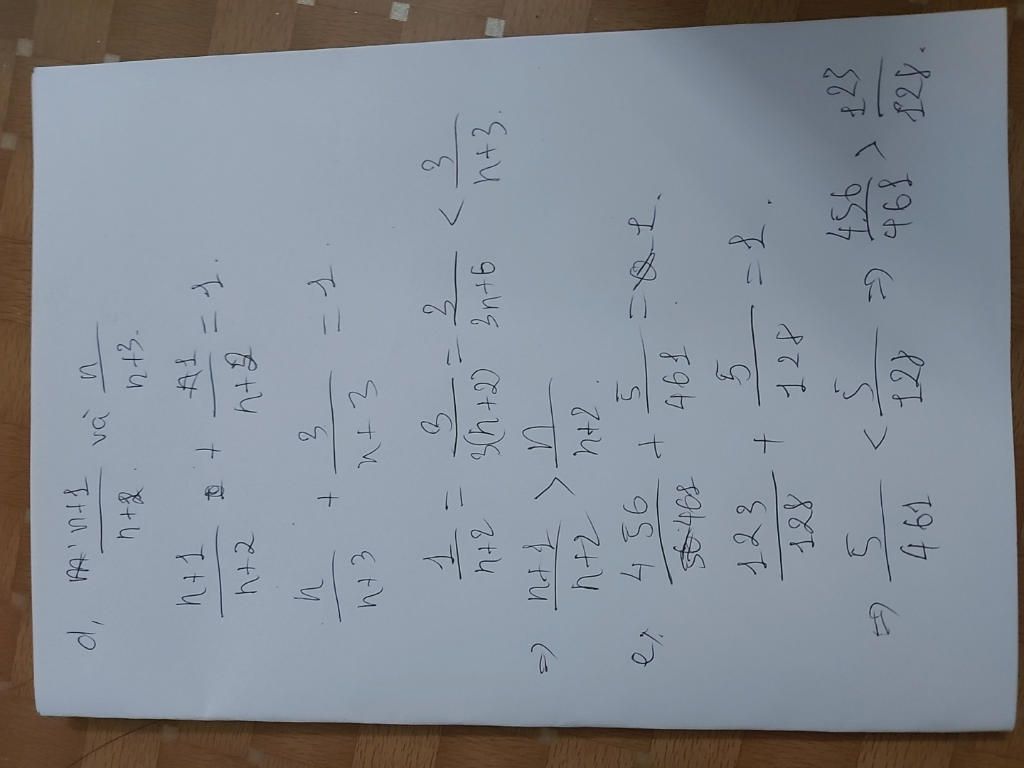 d, n+1/n+2 và n/n+3.
n+1/n+2 + 1/n+2 = 1.
n/n+3 + 3/n+3 = 1.
1/n+2 = 3/3(n+2) = 3/3n+6 < 3/n+3.
=> n+1/n+2 > n/n+2.
e, 456/461 + 5/461 = 1.
123/128 + 5/128 = 1.
=> 5/461 < 5/128 => 456/461 > 123/128.